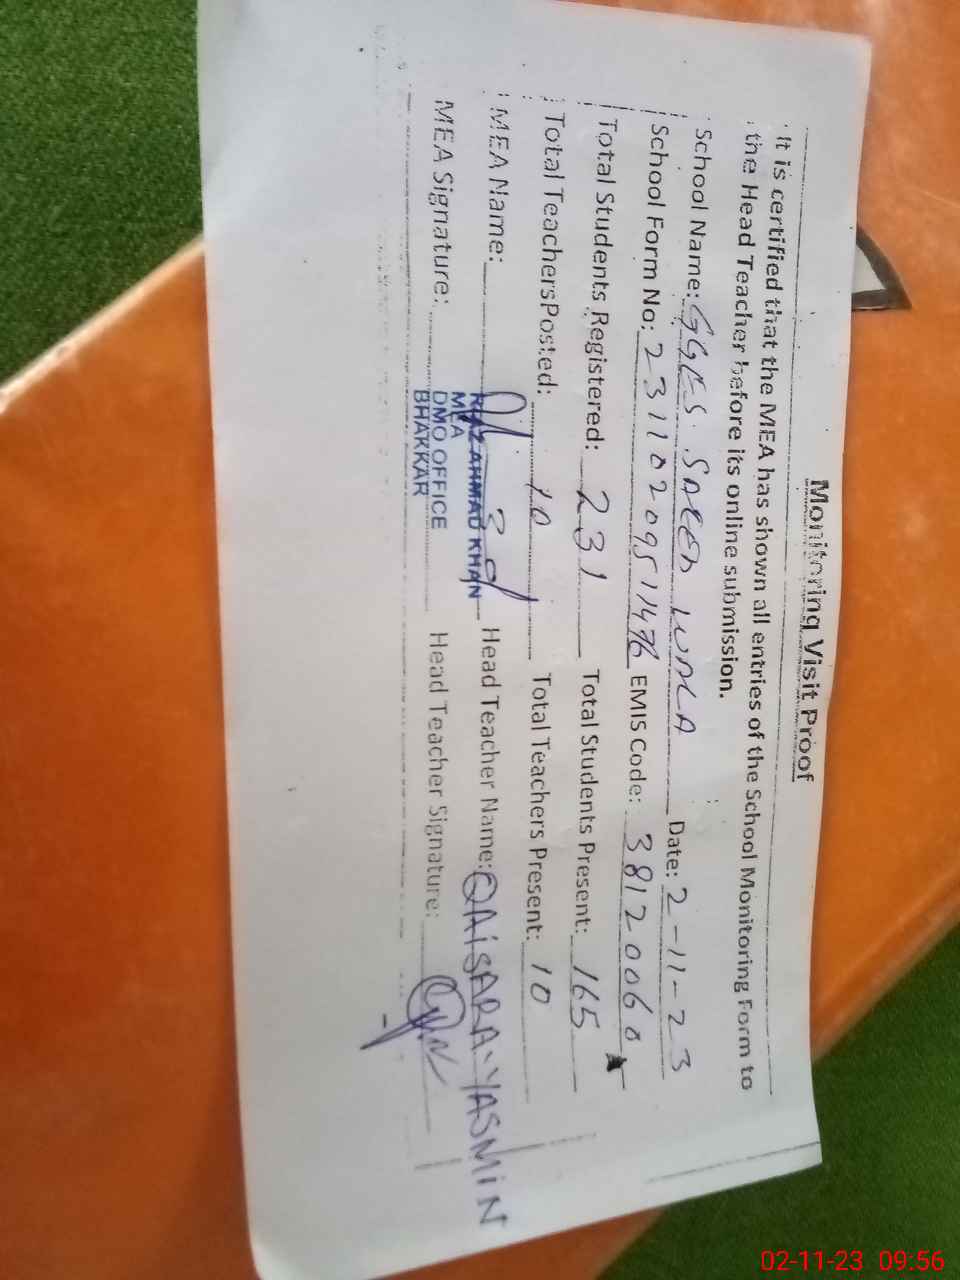 Monitoring Visit Proof
It is certified that the MEA has shown all entries of the School Monitoring Form to
the Head Teacher before its online submission.
School Name: GGES. SAEED WALA Date: 2-11-23
School Form No: 23110209511476 EMIS Code: 38120060
Total Students Registered: 231 Total Students Present: 165
Total TeachersPosted: 10 Total Teachers Present: 10
MEA Name: RIAZ AHMAD KHAN Head Teacher Name: QAISARA-YASMIN
MEA
MEA Signature: DMO OFFICE Head Teacher Signature:
BHAKKAR
02-11-23 09:56